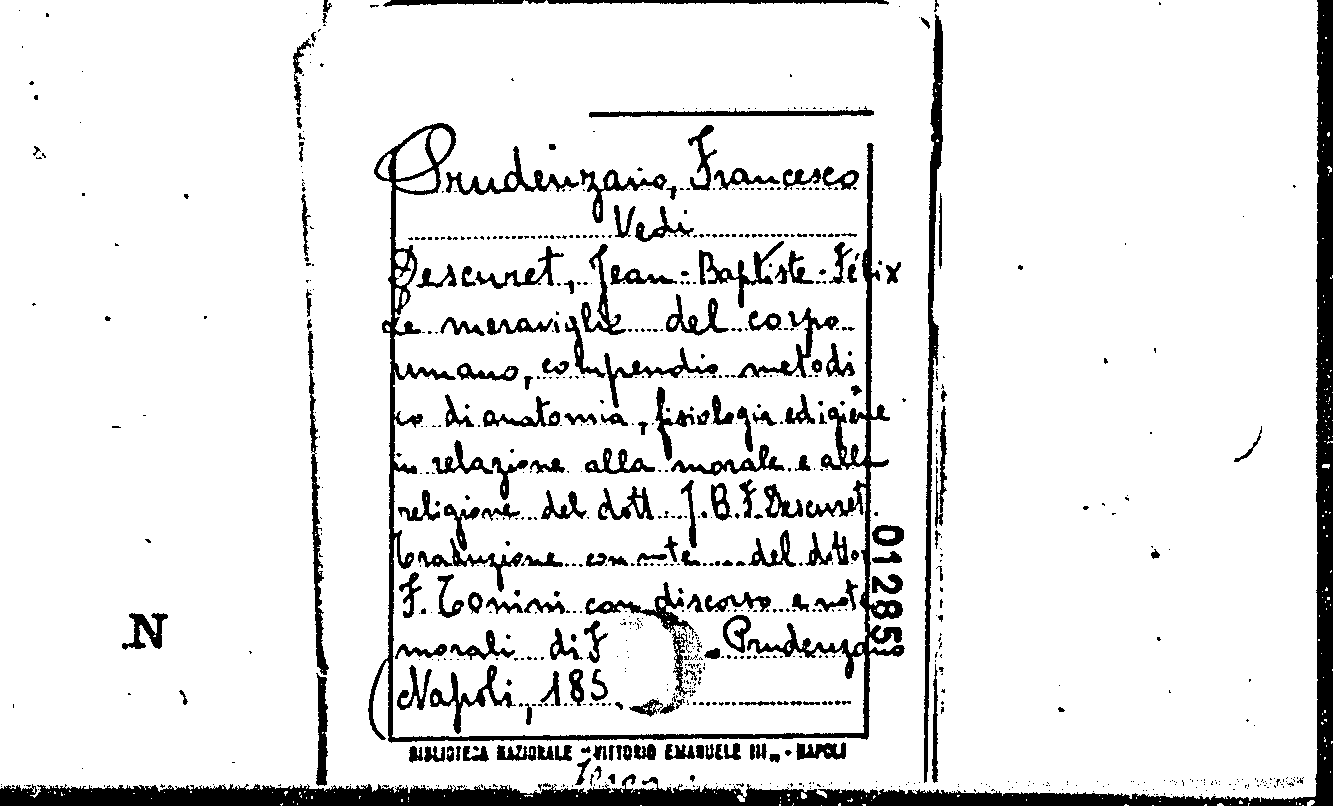 Prudenzano, Francesco
Vedi
Descuret, Jean-Baptiste-Félix
Le meraviglie del corpo
umano, compendio metodi
co di anatomia, fisiologia ed igiene
in relazione alla morale e alla
religione del dott. J.B.F. Descuret.
Traduzione con note ... del dottor
F. Tonini con discorso e note
morali di F. Prudenzano
Napoli, 185
BIBLIOTECA NAZIONALE "VITTORIO EMANUELE III" - NAPOLI
012850
N